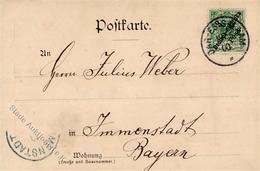 Postkarte.
DAR-ES-SALAAM
An
Herrn Julius Weber
in Immenstadt
Bayern
Wohnung
(Straße und Hausnummer)